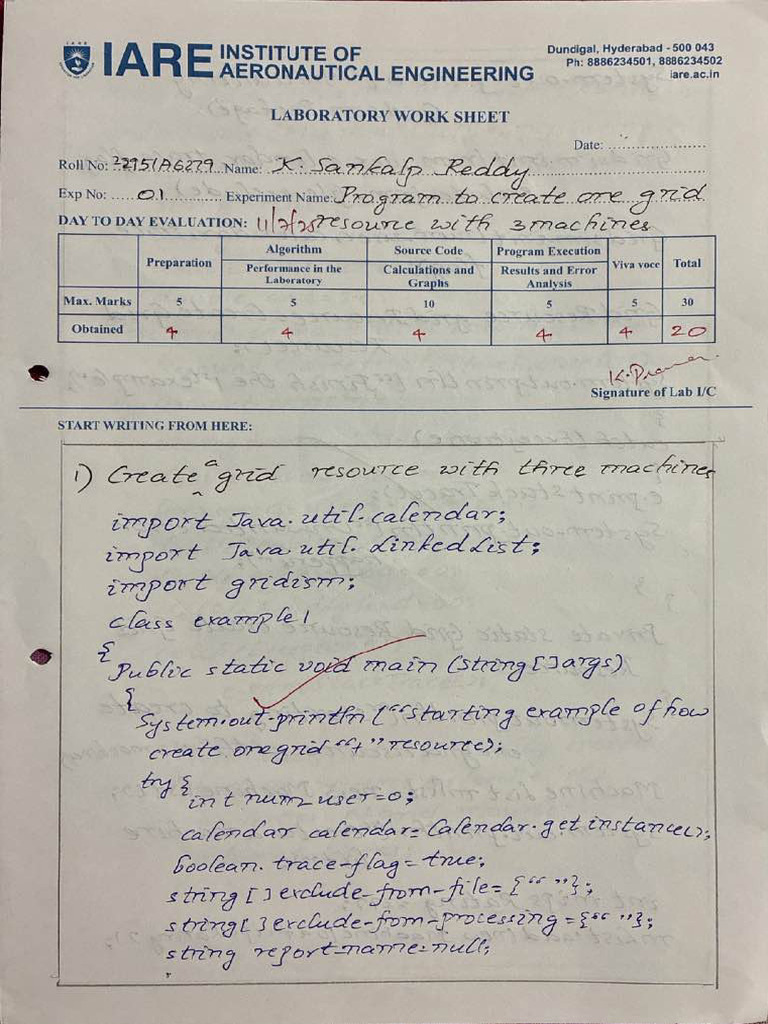 IARE INSTITUTE OF AERONAUTICAL ENGINEERING
Dundigal, Hyderabad - 500 043
Ph: 8886234501, 8886234502
iare.ac.in
LABORATORY WORK SHEET
Date: ......................
Roll No: 22951A6279 Name: K. Sankalp Reddy
Exp No: 01 Experiment Name: Program to create one grid
DAY TO DAY EVALUATION: 11/7/25 resource with 3 machines
Preparation Algorithm Source Code Program Execution Viva voce Total
Performance in the Laboratory Calculations and Graphs Results and Error Analysis
Max. Marks 5 5 10 5 5 30
Obtained 4 4 4 4 4 20
Signature of Lab I/C
START WRITING FROM HERE:
1) Create a grid resource with three machines
import Java.util.calendar;
import Java.util.LinkedList;
import gridism;
class example1
{
Public static void main (string[]args)
{
System.out.println (“starting example of how
create one grid “+” resource);
try {
int num_user=0;
calendar calendar= Calendar.get instance();
boolean. trace-flag=true;
string [] exclude-from-file={“ ”};
string[] exclude-from-processing={“ ”};
string report-name=null;